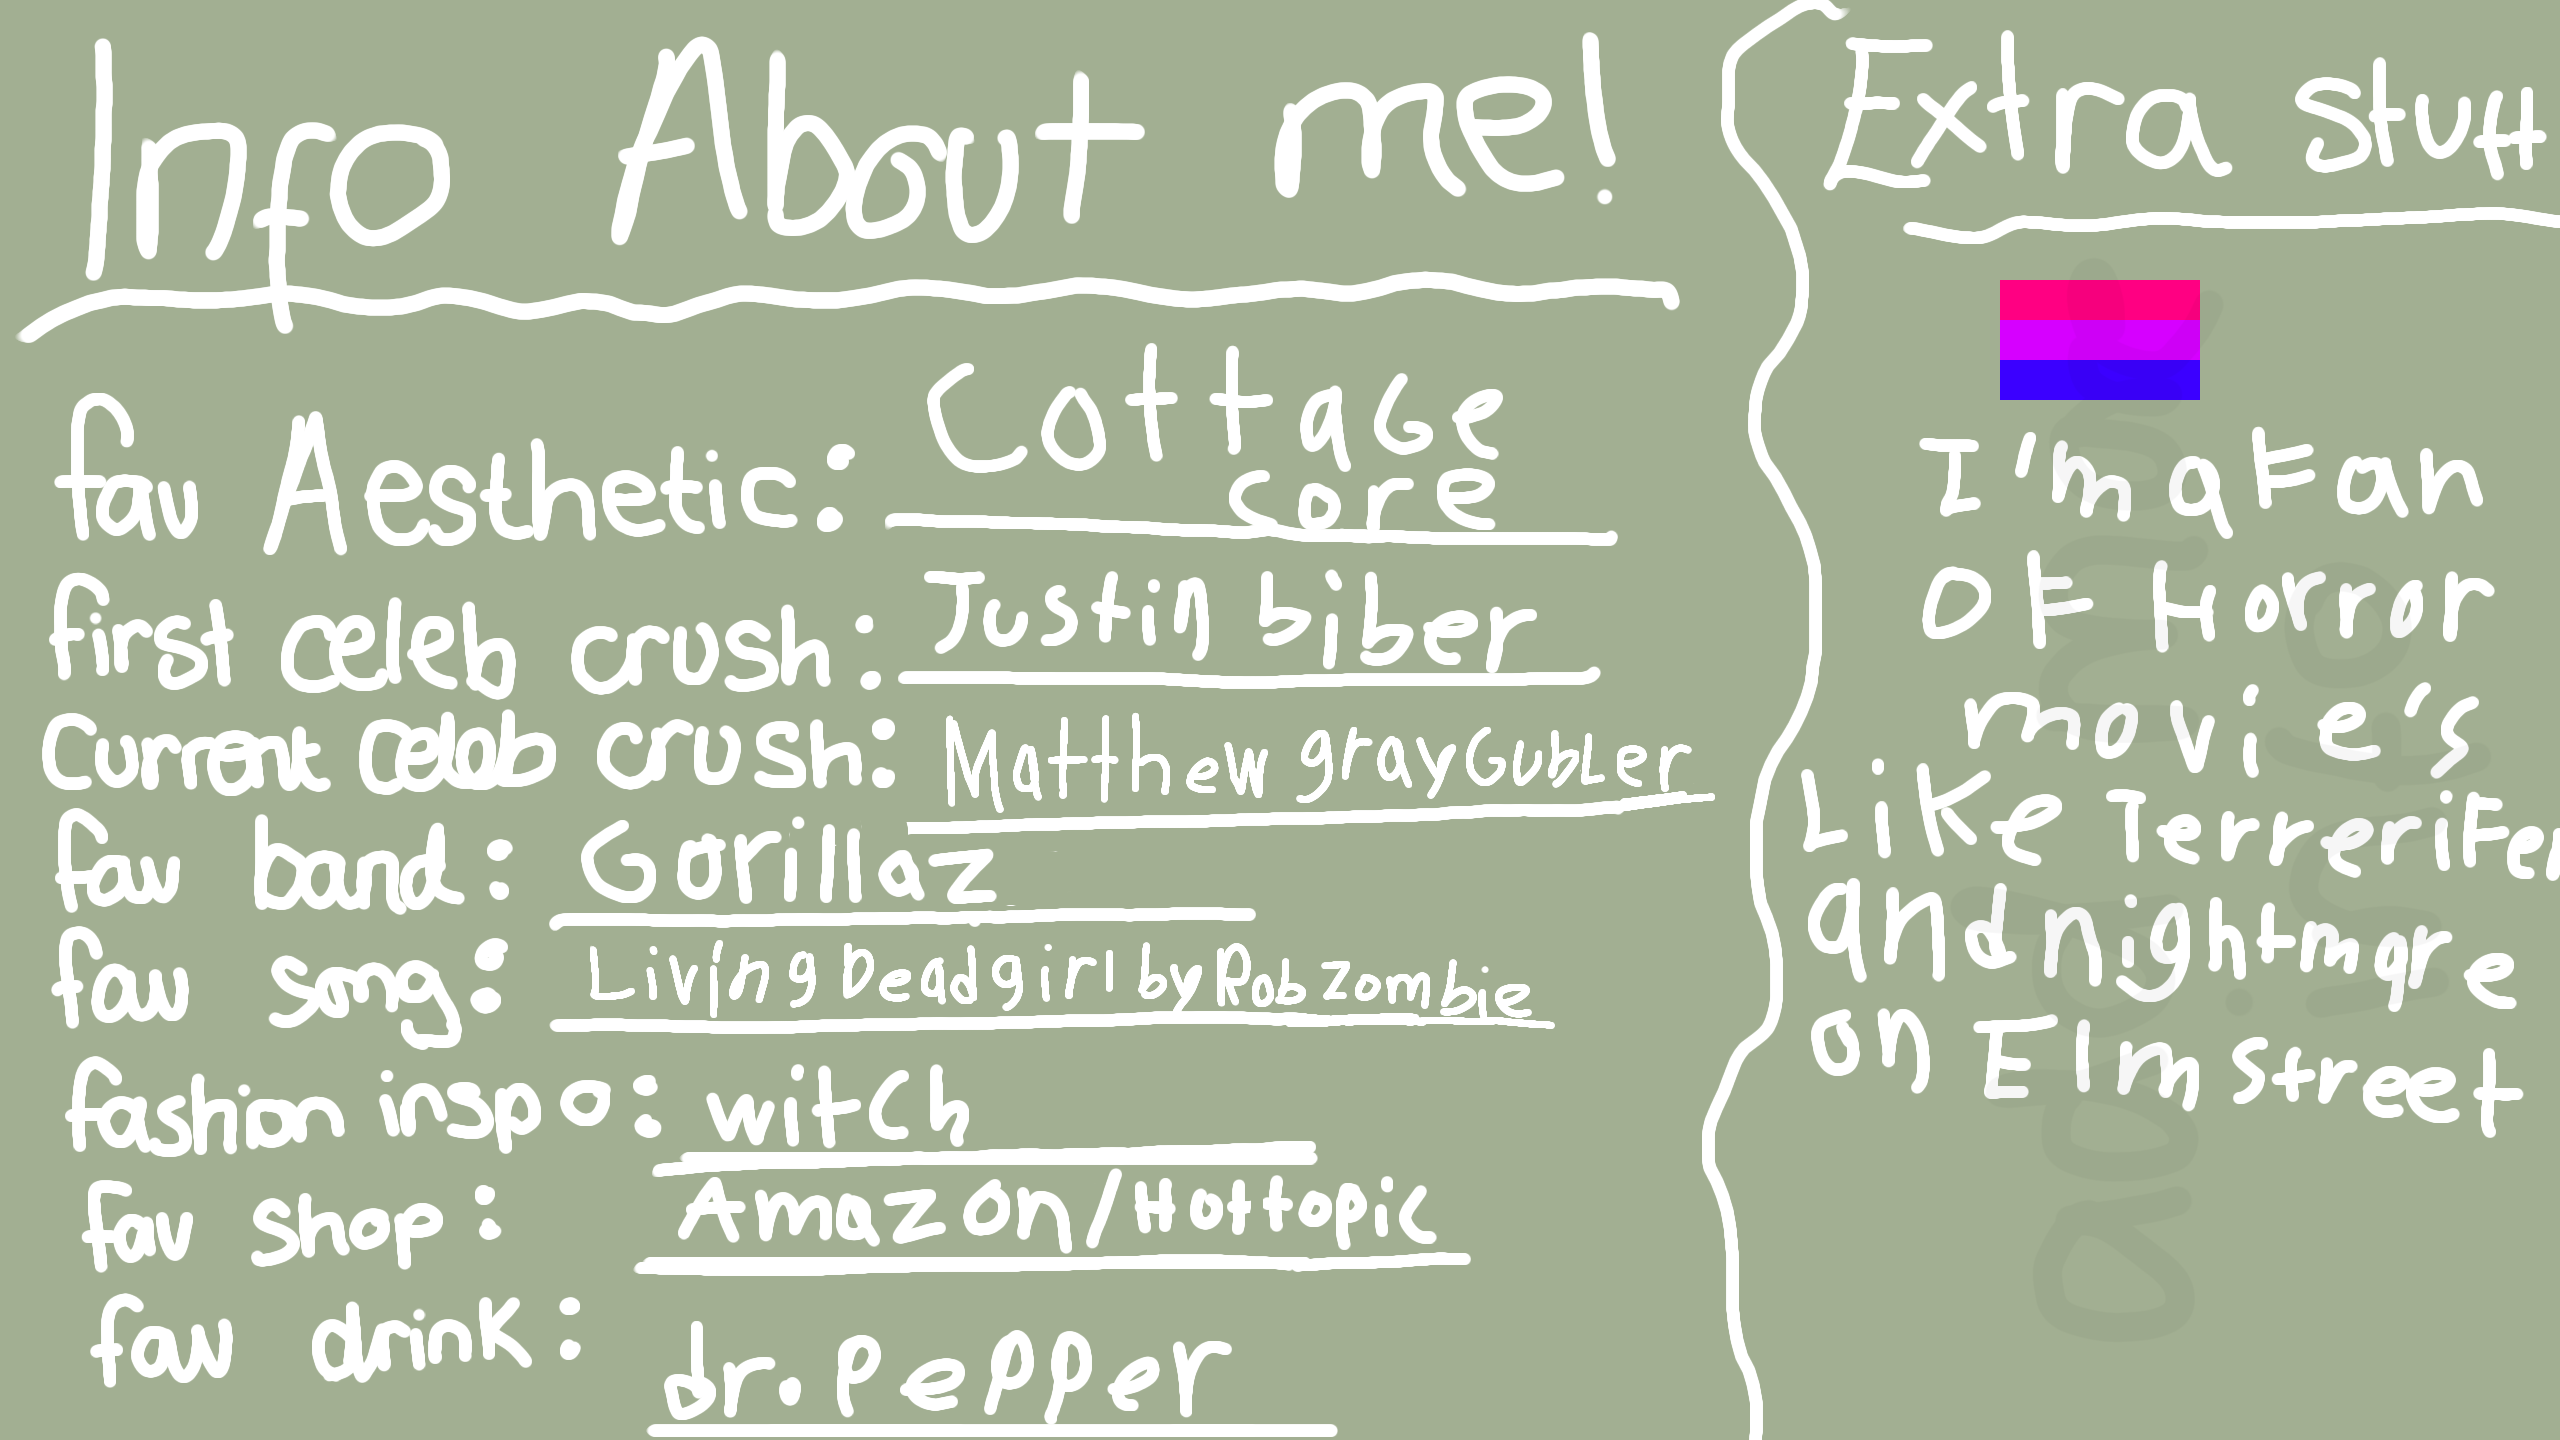 Info About me!
fav Aesthetic: Cottage
core
first celeb crush: Justin biber
Current celeb crush: Matthew gray Gubler
fav band: Gorillaz
fav song: Living Dead girl by Rob zombie
fashion inspo: witch
fav shop: Amazon/Hottopic
fav drink: dr. pepper
Extra stuff
I'm a Fan
OF Horror
movie's
Like Terrerifer
and nightmare
on Elm street